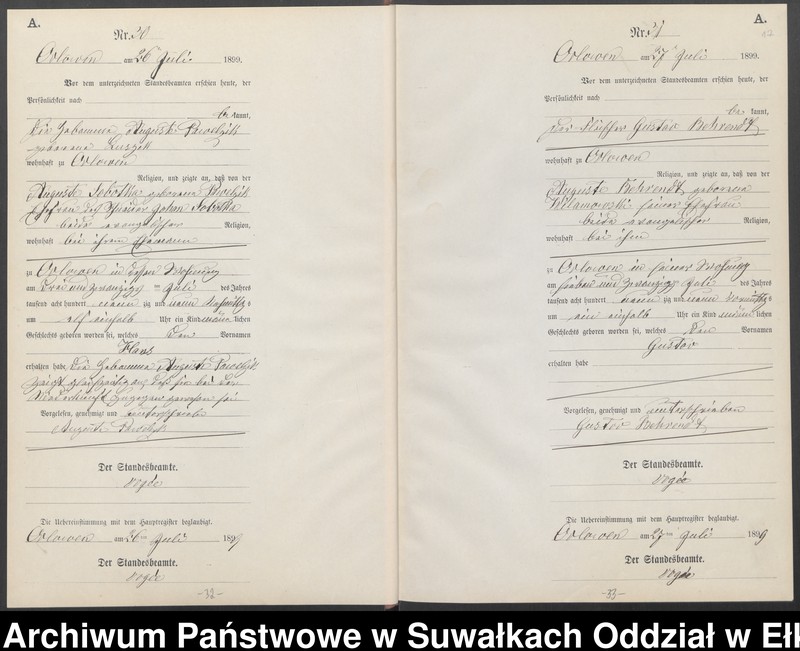 A.
Nr. 50
Orlowen am 26ten Juli 1899.
Vor dem unterzeichneten Standesbeamten erschien heute, der
Persönlichkeit nach
be kannt,
die Hebamme Auguste
geborene
wohnhaft zu Orlowen
Religion, und zeigte an, daß von der
Auguste Sobottka geborene
Ehefrau des Johan Sobottka
beide evangelischer Religion,
wohnhaft bei ihrem Ehemann
zu Orlowen in dessen Wohnung
am drei und zwanzigsten Juli des Jahres
tausend acht hundert neun zig und neun Vormittags
um elf einhalb Uhr ein Kind männlichen
Geschlechts geboren worden sei, welches den Vornamen
Hans
erhalten habe. Die Hebamme Auguste
zeigt gleichzeitig an, daß sie bei der
Niederkunft zugegen gewesen sei
Vorgelesen, genehmigt und unterschrieben
Auguste
Der Standesbeamte.
Die Uebereinstimmung mit dem Hauptregister beglaubigt.
Orlowen am 26ten Juli 1899
Der Standesbeamte.
-32-
A.
Nr. 51
Orlowen am 27ten Juli 1899.
Vor dem unterzeichneten Standesbeamten erschien heute, der
Persönlichkeit nach
be kannt,
der Gustav Behrendt
wohnhaft zu Orlowen
Religion, und zeigte an, daß von der
Auguste Behrendt geborene
seiner Ehefrau
beide evangelischer Religion,
wohnhaft bei ihm
zu Orlowen in seiner Wohnung
am sieben und zwanzigsten Juli des Jahres
tausend acht hundert neun zig und neun Vormittags
um ein einhalb Uhr ein Kind männlichen
Geschlechts geboren worden sei, welches den Vornamen
Gustav
erhalten habe
Vorgelesen, genehmigt und unterschrieben
Gustav Behrendt
Der Standesbeamte.
Die Uebereinstimmung mit dem Hauptregister beglaubigt.
Orlowen am 27ten Juli 1899
Der Standesbeamte.
-33-
Archiwum Państwowe w Suwałkach Oddział w Ełk